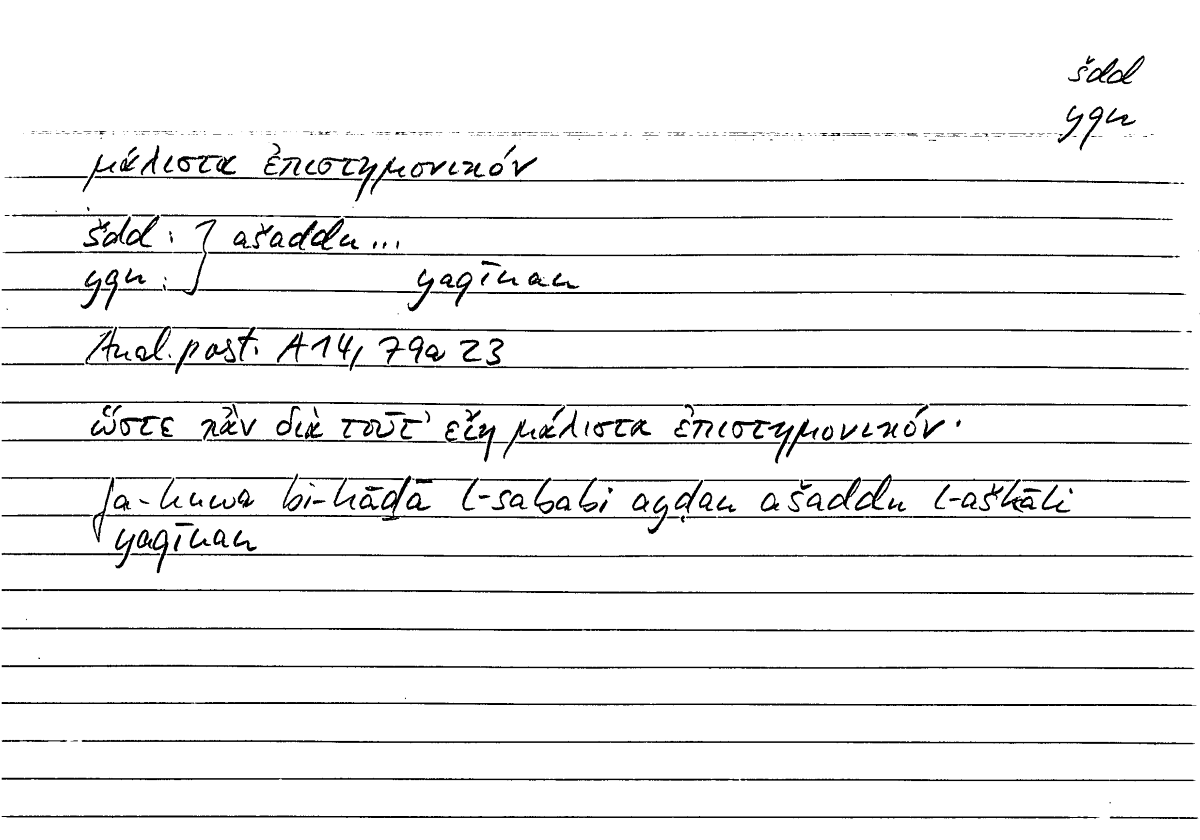 šdd
yqn
μάλιστα ἐπιστημονικόν
šdd : } ašaddu...
yqn : yaqīnan
Anal. post. A 14, 79a 23
ὥστε κἂν διὰ τοῦτ' εἴη μάλιστα ἐπιστημονικόν·
fa-huwa bi-hāḏā l-sababi ayḍan ašaddu l-aškāli
yaqīnan